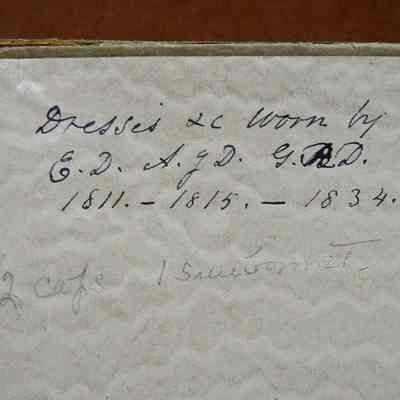 Dresses &c worn by
E.D. A.J D. G.R D.
1811. - 1815. - 1834.
2 caps 1 Sunbonnet.